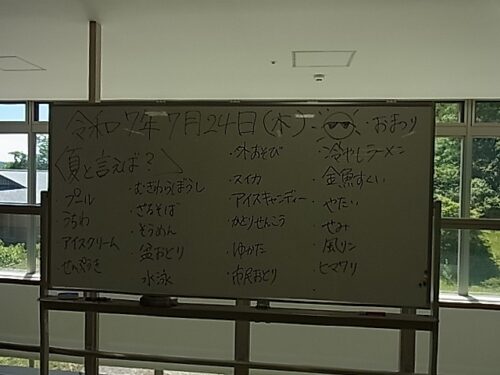 令和7年7月24日(木)
・おまつり
〈夏と言えば?〉
プール
うちわ
アイスクリーム
せんぷうき
・むぎわらぼうし
ざるそば
そうめん
盆おどり
水泳
・外あそび
・スイカ
・アイスキャンディー
・かとりせんこう
・ゆかた
・市民おどり
・冷やしラーメン
・金魚すくい
・やたい
・せみ
・風リン
・ヒマワリ